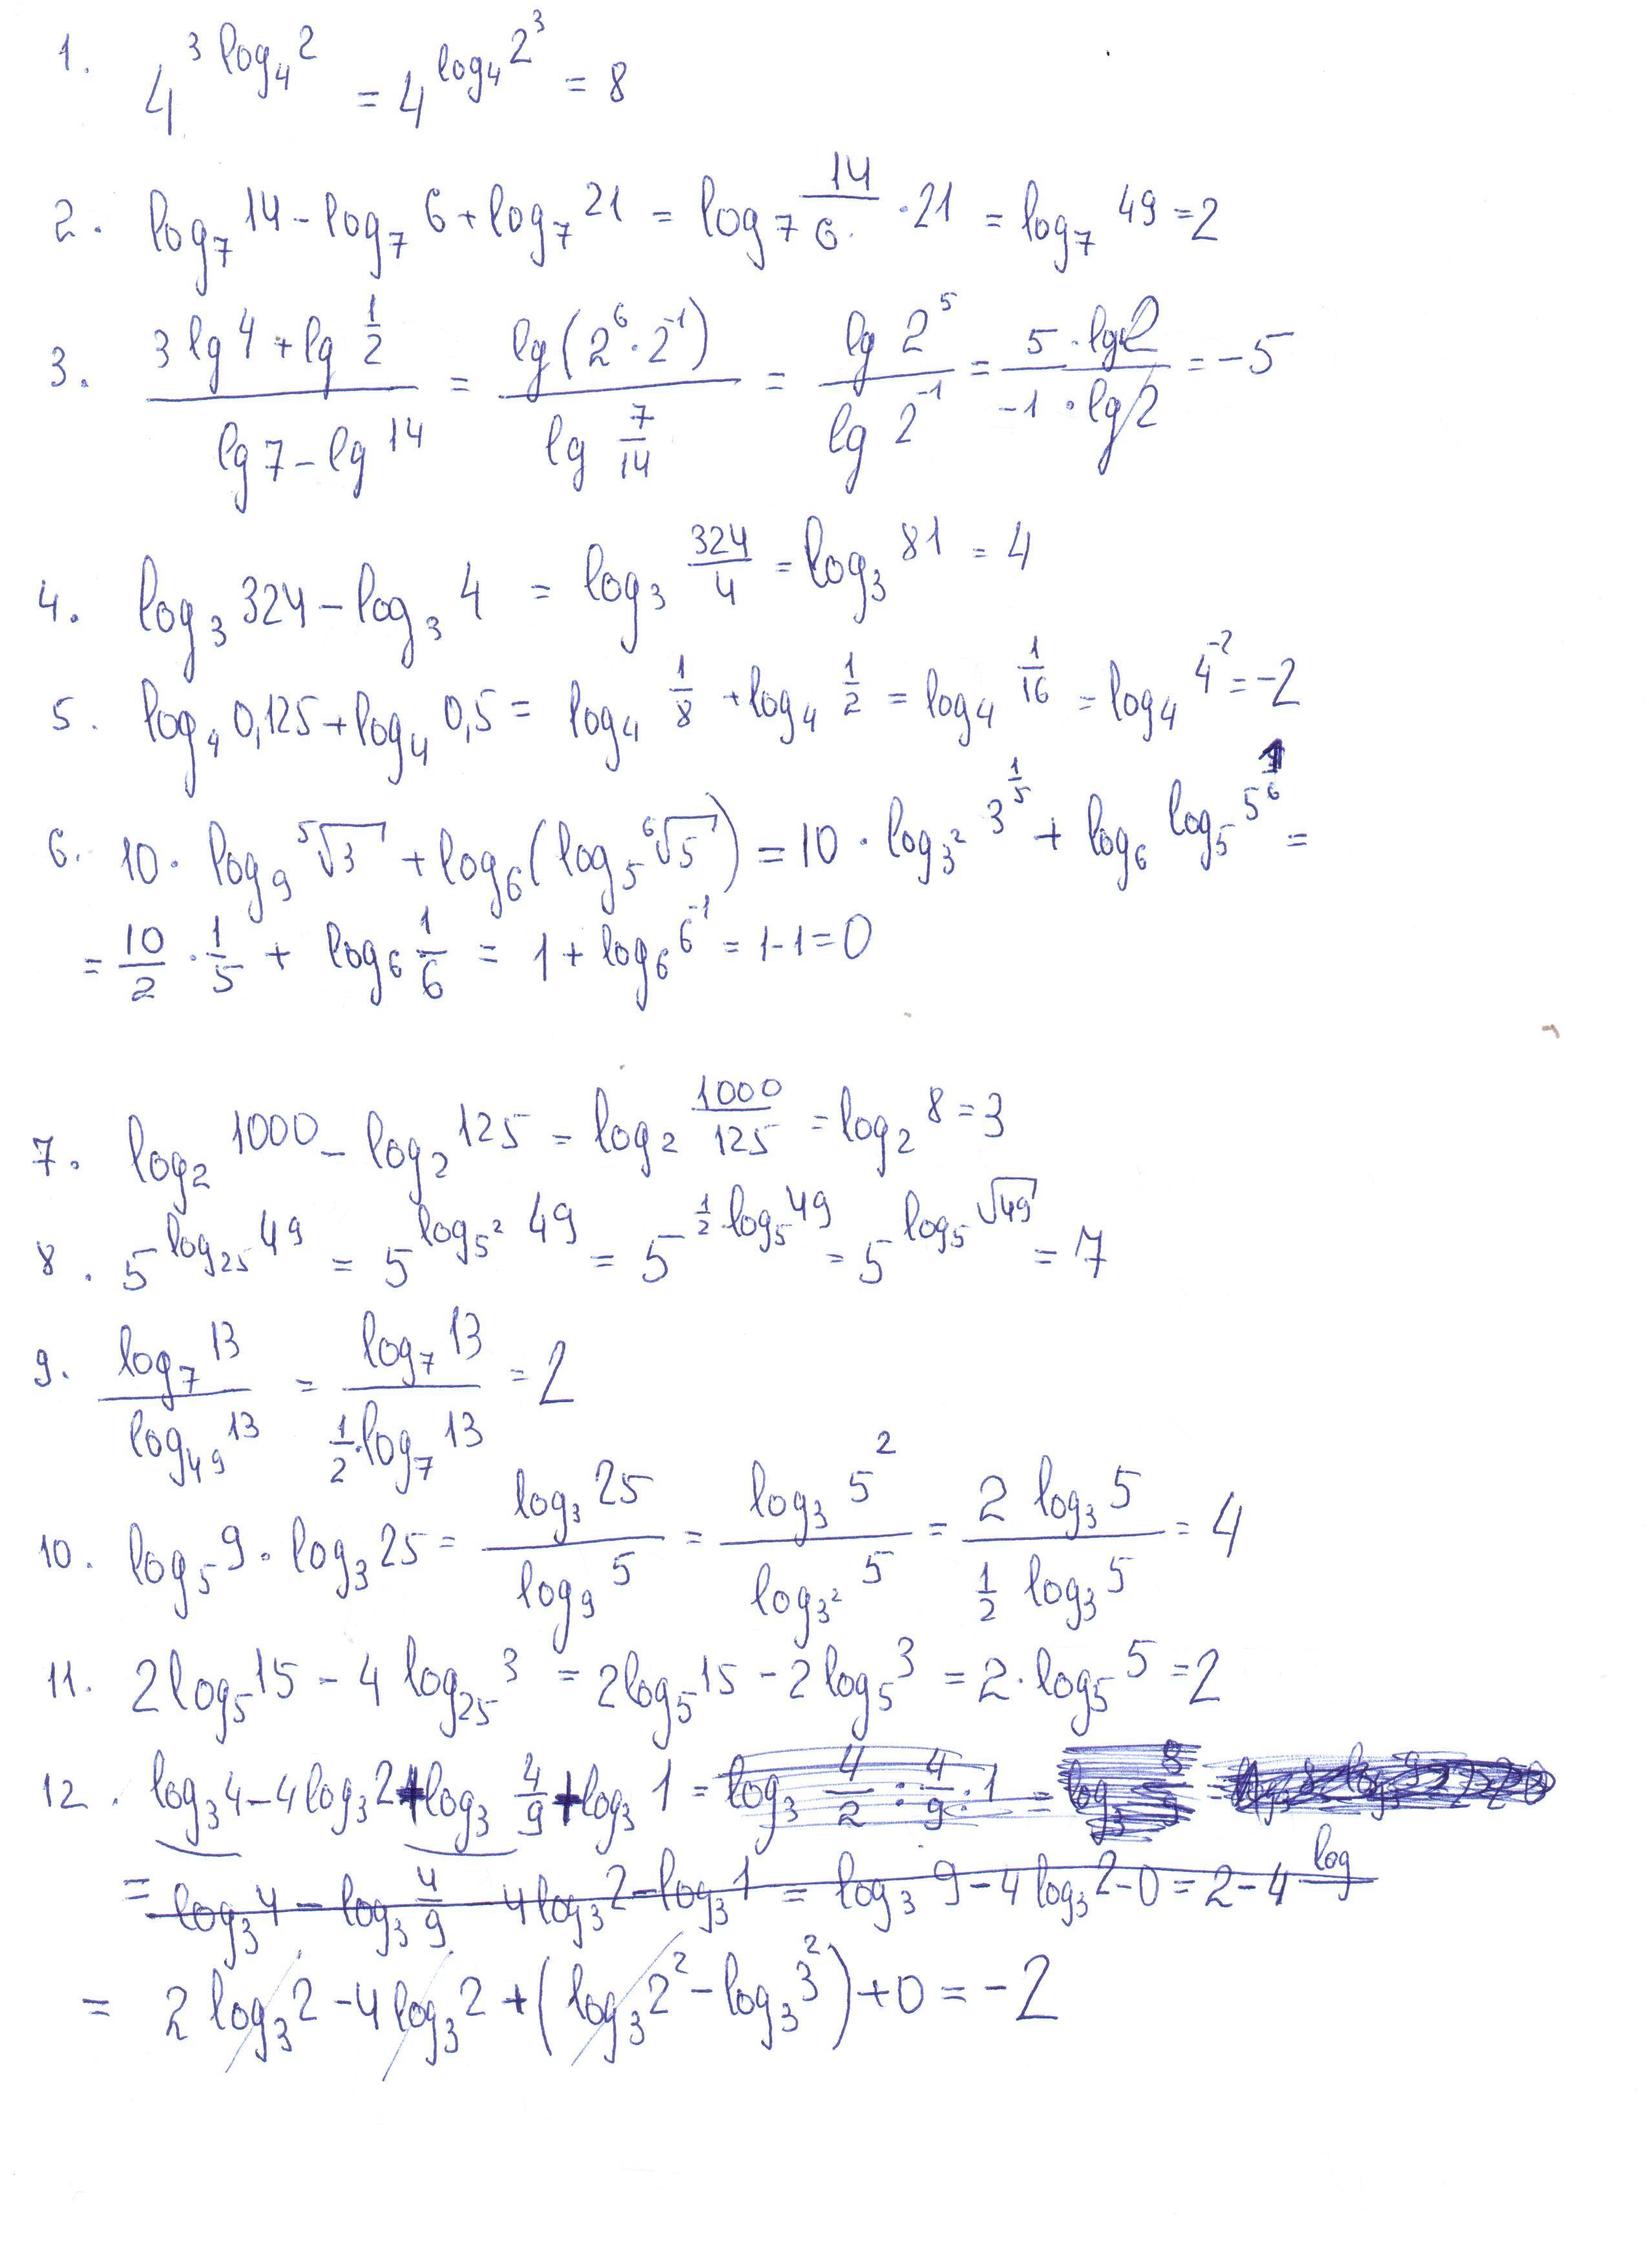 1. 4^{3 log_4 2} = 4^{log_4 2^3} = 8
2. log_7 14 - log_7 6 + log_7 21 = log_7 \frac{14}{6} · 21 = log_7 49 = 2
3. \frac{3 lg 4 + lg \frac{1}{2}}{lg 7 - lg 14} = \frac{lg (2^6 · 2^{-1})}{lg \frac{7}{14}} = \frac{lg 2^5}{lg 2^{-1}} = \frac{5 · lg 2}{-1 · lg 2} = -5
4. log_3 324 - log_3 4 = log_3 \frac{324}{4} = log_3 81 = 4
5. log_4 0,125 + log_4 0,5 = log_4 \frac{1}{8} + log_4 \frac{1}{2} = log_4 \frac{1}{16} = log_4 4^{-2} = -2
6. 10 · log_9 \sqrt[5]{3} + log_6 (log_5 \sqrt[6]{5}) = 10 · log_{3^2} 3^{\frac{1}{5}} + log_6 log_5 5^{\frac{1}{6}} =
= \frac{10}{2} · \frac{1}{5} + log_6 \frac{1}{6} = 1 + log_6 6^{-1} = 1 - 1 = 0
7. log_2 1000 - log_2 125 = log_2 \frac{1000}{125} = log_2 8 = 3
8. 5^{log_{25} 49} = 5^{log_{5^2} 49} = 5^{\frac{1}{2} · log_5 49} = 5^{log_5 \sqrt{49}} = 7
9. \frac{log_7 13}{log_{49} 13} = \frac{log_7 13}{\frac{1}{2} · log_7 13} = 2
10. log_5 9 · log_3 25 = \frac{log_3 25}{log_9 5} = \frac{log_3 5^2}{log_{3^2} 5} = \frac{2 log_3 5}{\frac{1}{2} log_3 5} = 4
11. 2 log_5 15 - 4 log_{25} 3 = 2 log_5 15 - 2 log_5 3 = 2 · log_5 5 = 2
12. log_3 4 - 4 log_3 2 + log_3 \frac{4}{9} + log_3 1 = log_3 \frac{4}{2} : \frac{4}{9} : 1 =
= log_3 4 - log_3 \frac{4}{9} - 4 log_3 2 - log_3 1 = log_3 9 - 4 log_3 2 - 0 = 2 - 4 log
= 2 log_3 2 - 4 log_3 2 + (log_3 2^2 - log_3 3^2) + 0 = -2